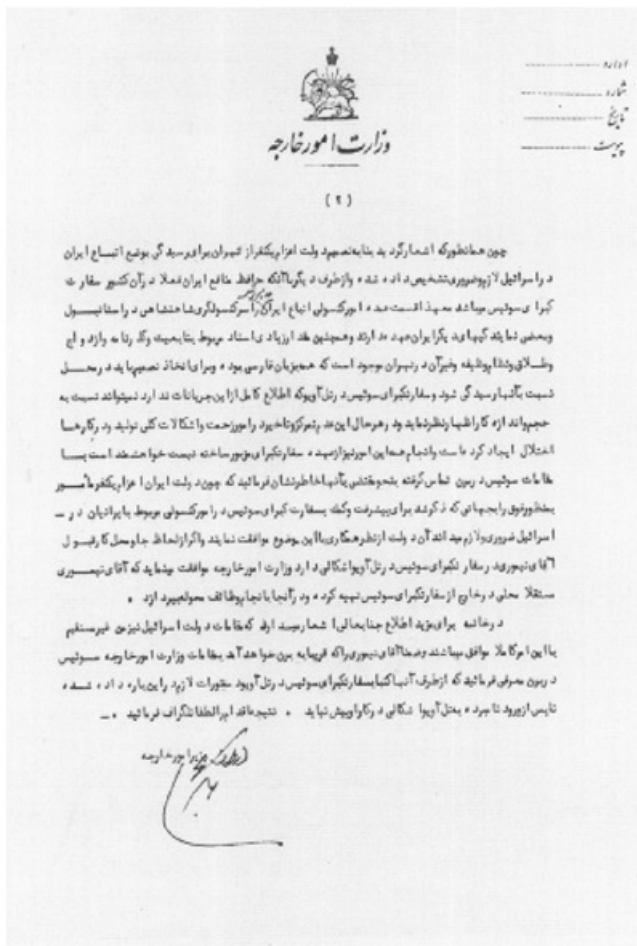 اداره
شماره
تاریخ
پیوست
وزارت امور خارجه
(۲)
چون همانطور که اشعار گردید بنا بتصمیم دولت اعزام یکنفر از تهران برای رسیدگی بوضع اتباع ایران
در اسرائیل لازم و ضروری تشخیص داده شده و از طرف دیگر با آنکه حافظ منافع ایران فعلا در آن کشور سفارت
کبرای سوئیس میباشد معهذا قسمت عمده امور کنسولی اتباع ایران را سرکنسولگری شاهنشاهی در استانبول
وبعضی نمایندگیهای دیگر ایران عهده دارند وهمچنین مقدار زیادی اسناد مربوط بتابعیت وگذرنامه وازدواج
وطلاق ونظام وظیفه وغیرآن در تهران موجود است که همه بزبان فارسی بوده وبرای اتخاذ تصمیم باید در محل
نسبت بآنها رسیدگی شود وسفارتکبرای سوئیس در تل آویو که اطلاع کامل از این جریانات ندارد نمیتواند نسبت به
اظهار نظر نماید ودر هر حال این عدم تمرکز وتاخیر در امور زحمت واشکالات کلی تولید ودر کارها
اختلال ایجاد کرده است وانجام همه این امور نیز از عهده سفارتکبرای مزبور ساخته نیست خواهشمند است با
مقامات سوئیس در برن تماس گرفته بنحو مقتضی بآنها خاطرنشان فرمائید که چون دولت ایران اعزام یکنفر مأمور
بمنظور فوق را بجهاتی که ذکر شد برای پیشرفت وکمک بسفارت کبرای سوئیس در امور کنسولی مربوط بایرانیان در
اسرائیل ضروری ولازم میداند آن دولت از نظر همکاری با این موضوع موافقت نمایند واگر از لحاظ جا ومحل کار قبول
آقای تیموری در سفارتکبرای سوئیس در تل آویو اشکالی دارد وزارت امور خارجه موافقت مینماید که آقای تیموری
مستقلا محلی در خارج از سفارتکبرای سوئیس تهیه کرده ودر آنجا بانجام وظائف محوله بپردازد .
در خاتمه برای مزید اطلاع جنابعالی اشعار میدارد که مقامات دولت اسرائیل نیز من غیر مستقیم
با این امر کاملا موافق میباشند وضمنا آقای تیموری را که قریبا به برن خواهد آمد بمقامات وزارت امور خارجه سوئیس
در برن معرفی فرمائید که از طرف آنها کتبا بسفارتکبرای سوئیس در تل آویو دستورات لازم در این باره داده شده
تا پس از ورود نامبرده به تل آویو اشکالی در کار او پیش نیاید . نتیجه اقدام را لطفا تلگراف فرمائید . ــ
وزیر امور خارجه